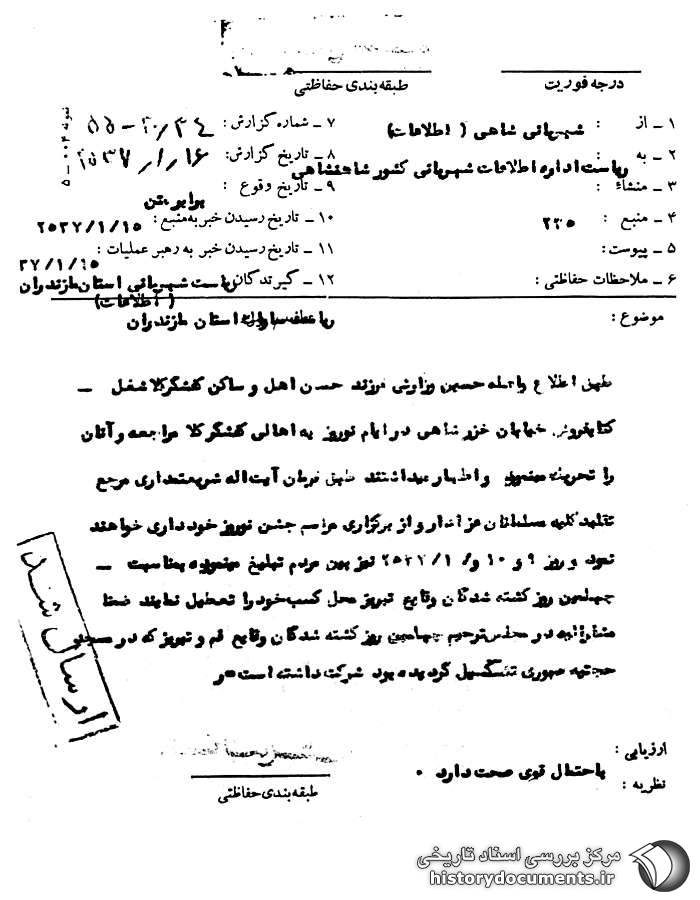 درجه فوریت
طبقه‌بندی حفاظتی
۱ ـ از : شهربانی شاهی ( اطلاعات)
۲ ـ به : ریاست اداره اطلاعات شهربانی کشور شاهنشاهی
۳ ـ منشاء :
۴ ـ منبع : ۲۳۵
۵ ـ پیوست:
۶ ـ ملاحظات حفاظتی :
۷ ـ شماره گزارش :
۸ ـ تاریخ گزارش: ۲۵۳۷/۱/۱۶
۹ ـ تاریخ وقوع : برابر متن
۱۰ ـ تاریخ رسیدن خبر به‌منبع : ۲۵۳۷/۱/۱۵
۱۱ ـ تاریخ رسیدن خبر به رهبر عملیات :
۳۷/۱/۱۵
۱۲ ـ گیرندگان ریاست شهربانی استان مازندران
( اطلاعات)
ریاست ساواک استان مازندران
موضوع :
طبق اطلاع واصله حسین وزارش فرزند حسن اهل و ساکن کفشگرکلا شغل ـ
کتابفروش خیابان خزر شاهی در ایام نوروز به اهالی کفشگر کلا مراجعه و آنان
را تحریک مینمود و اظهار میداشتند طبق فرمان آیت‌اله شریعتمداری مرجع
تقلید کلیه مسلمانان عزادار و از برگزاری مراسم جشن نوروز خودداری خواهند
نمود و روز ۹ و ۱۰ نیز بین مردم تبلیغ مینموده بمناسبت ـ
چهلمین روز کشته شدگان وقایع تبریز محل کسب خود را تعطیل نمایند ضمنا
مشارالیه در مجلس ترحیم چهلمین روز کشته شدگان وقایع قم و تبریز که در مسجد
تشکیل گردیده بود شرکت داشته است
ارسال شد
ارزیابی :
نظریه : باحتمال قوی صحت دارد ۰
طبقه‌بندی حفاظتی
مرکز بررسی اسناد تاریخی
historydocuments.ir